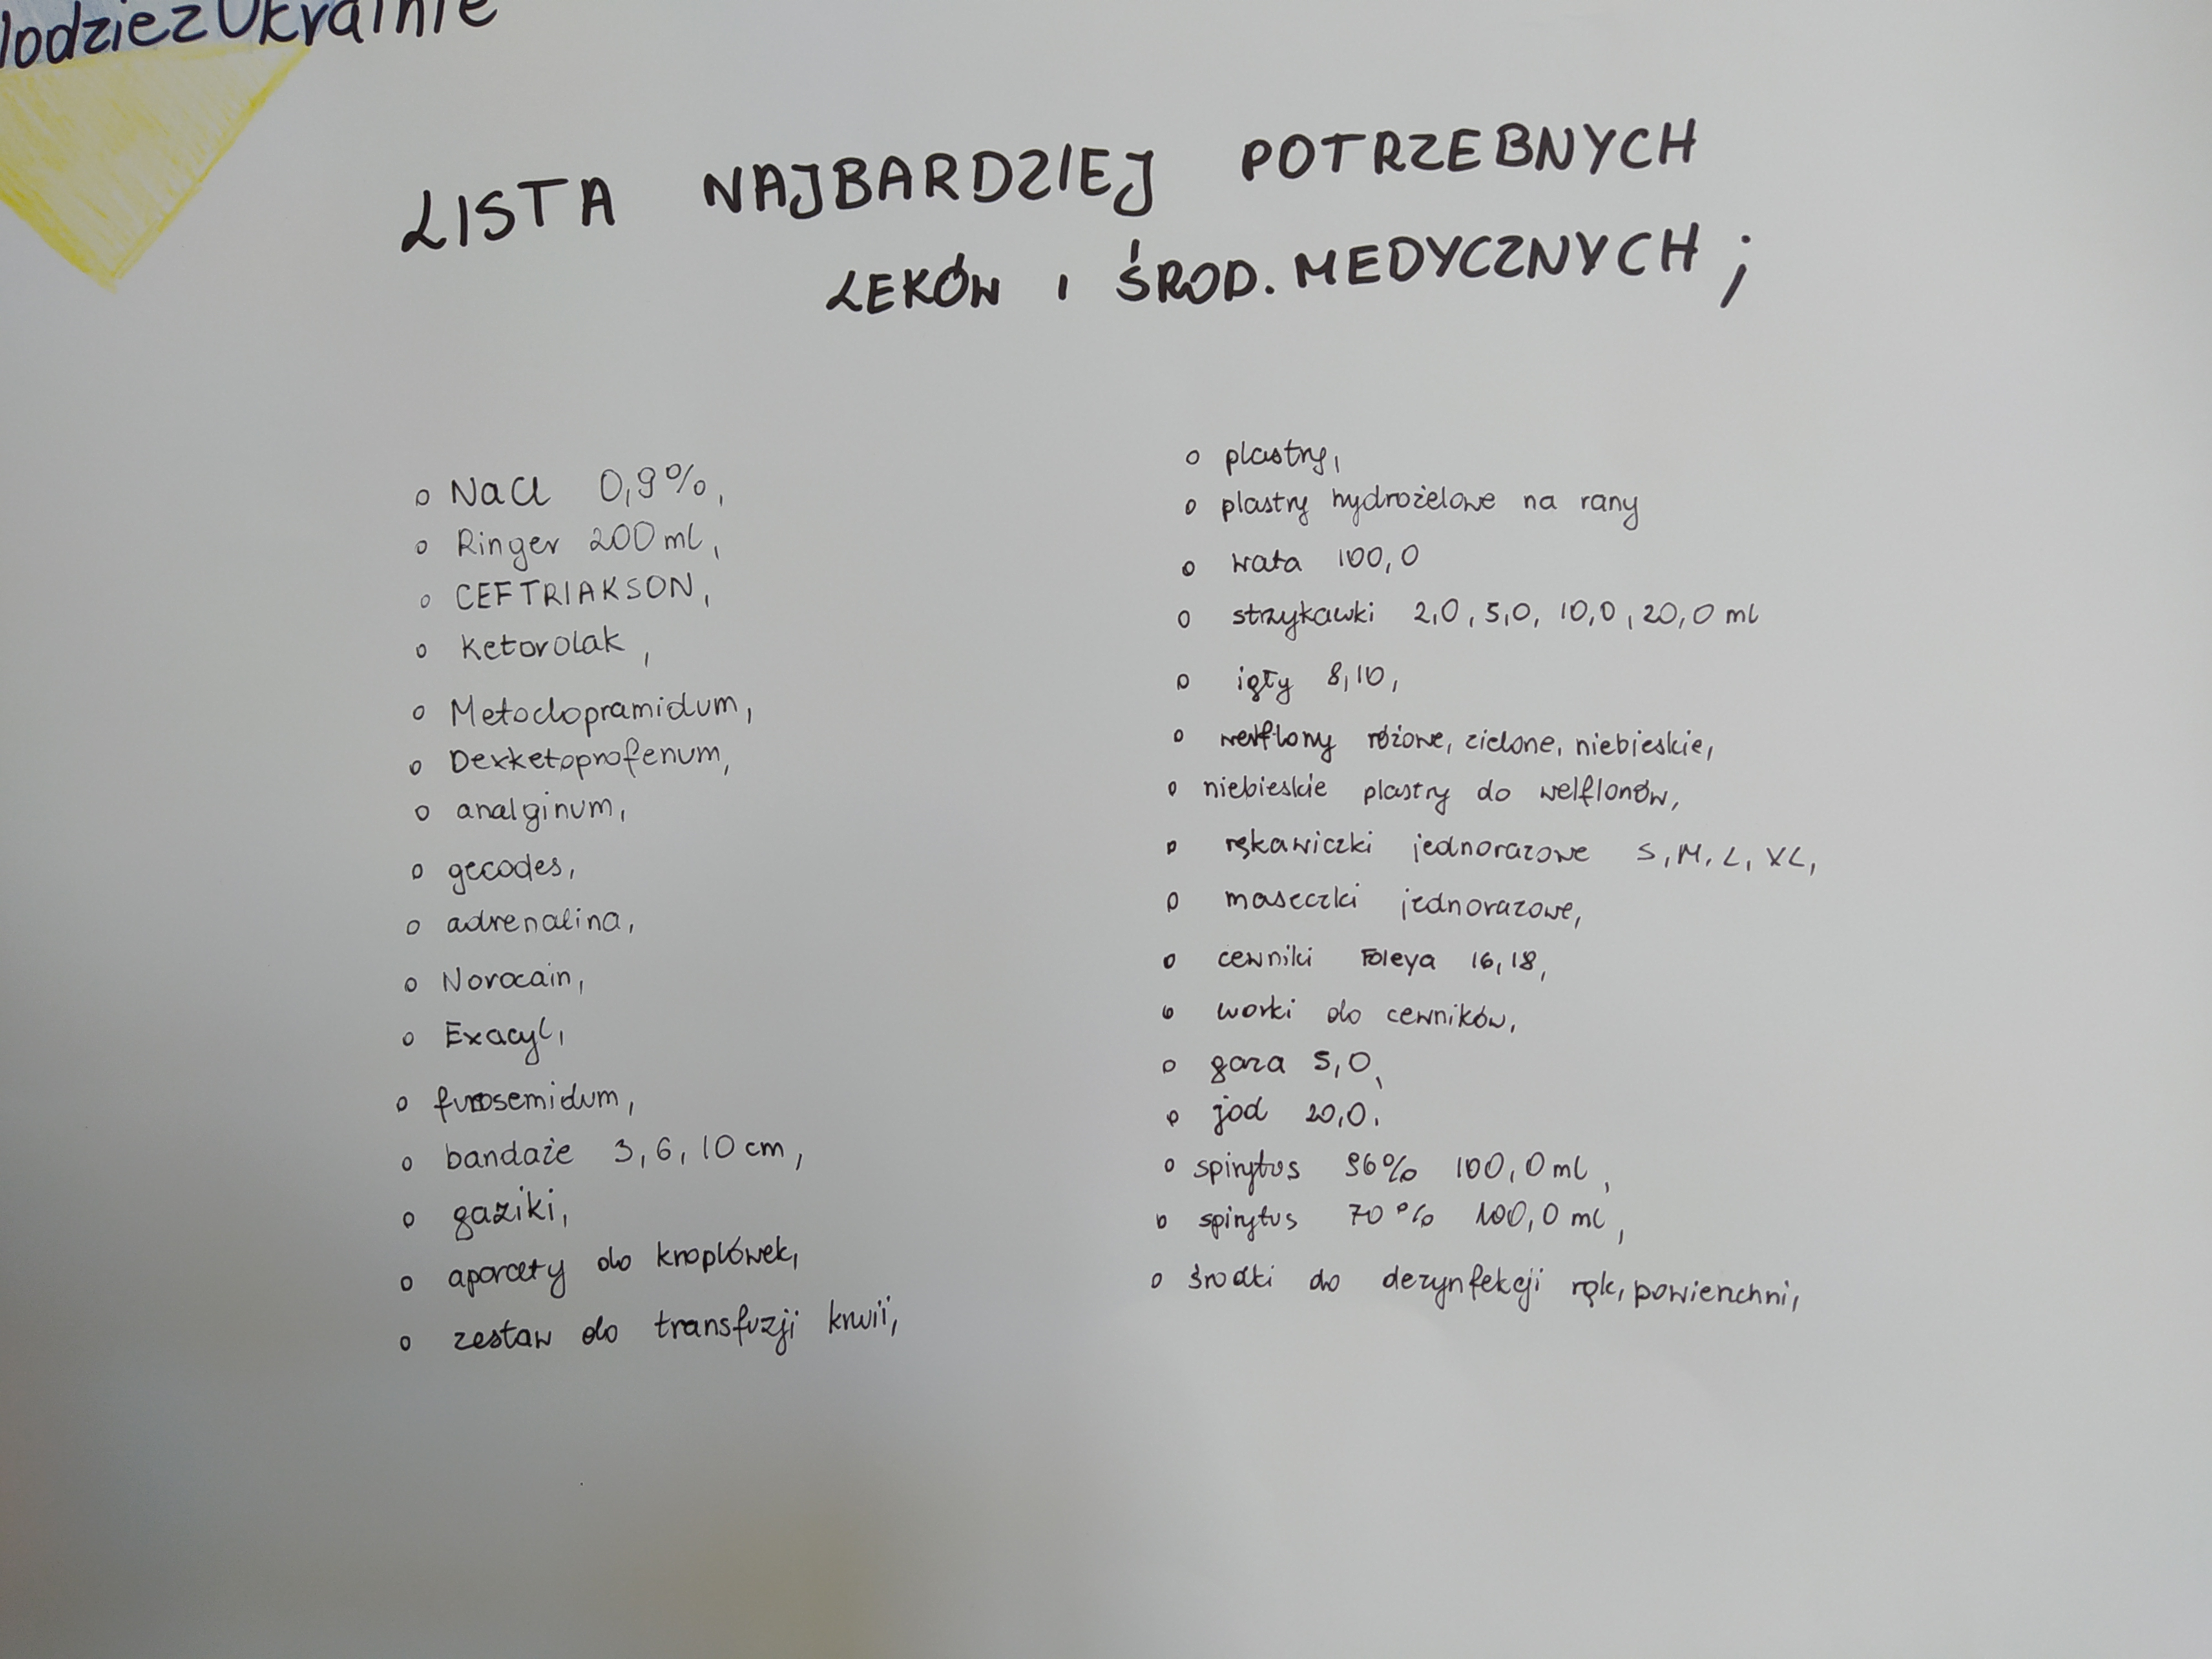 lodzieżUkrainie
LISTA NAJBARDZIEJ POTRZEBNYCH
LEKÓW I ŚROD. MEDYCZNYCH;
o NaCl 0,9%,
o Ringer 200 ml,
o CEFTRIAKSON,
o Ketorolak,
o Metoclopramidum,
o Dexketoprofenum,
o analginum,
o gecodes,
o adrenalina,
o Norocain,
o Exacyl,
o furosemidum,
o bandaże 3, 6, 10 cm,
o gaziki,
o aparaty do kroplówek,
o zestaw do transfuzji krwii,
o plastry,
o plastry hydrożelowe na rany
o wata 100,0
o strzykawki 2,0, 5,0, 10,0, 20,0 ml
o igły 8, 10,
o welflony różowe, zielone, niebieskie,
o niebieskie plastry do welflonów,
o rękawiczki jednorazowe S, M, L, XL,
o maseczki jednorazowe,
o cewniki Foleya 16, 18,
o worki do cewników,
o gaza 5,0,
o jod 20,0.
o spirytus 96% 100,0 ml,
o spirytus 70% 100,0 ml,
o środki do dezynfekcji rąk, powierzchni,